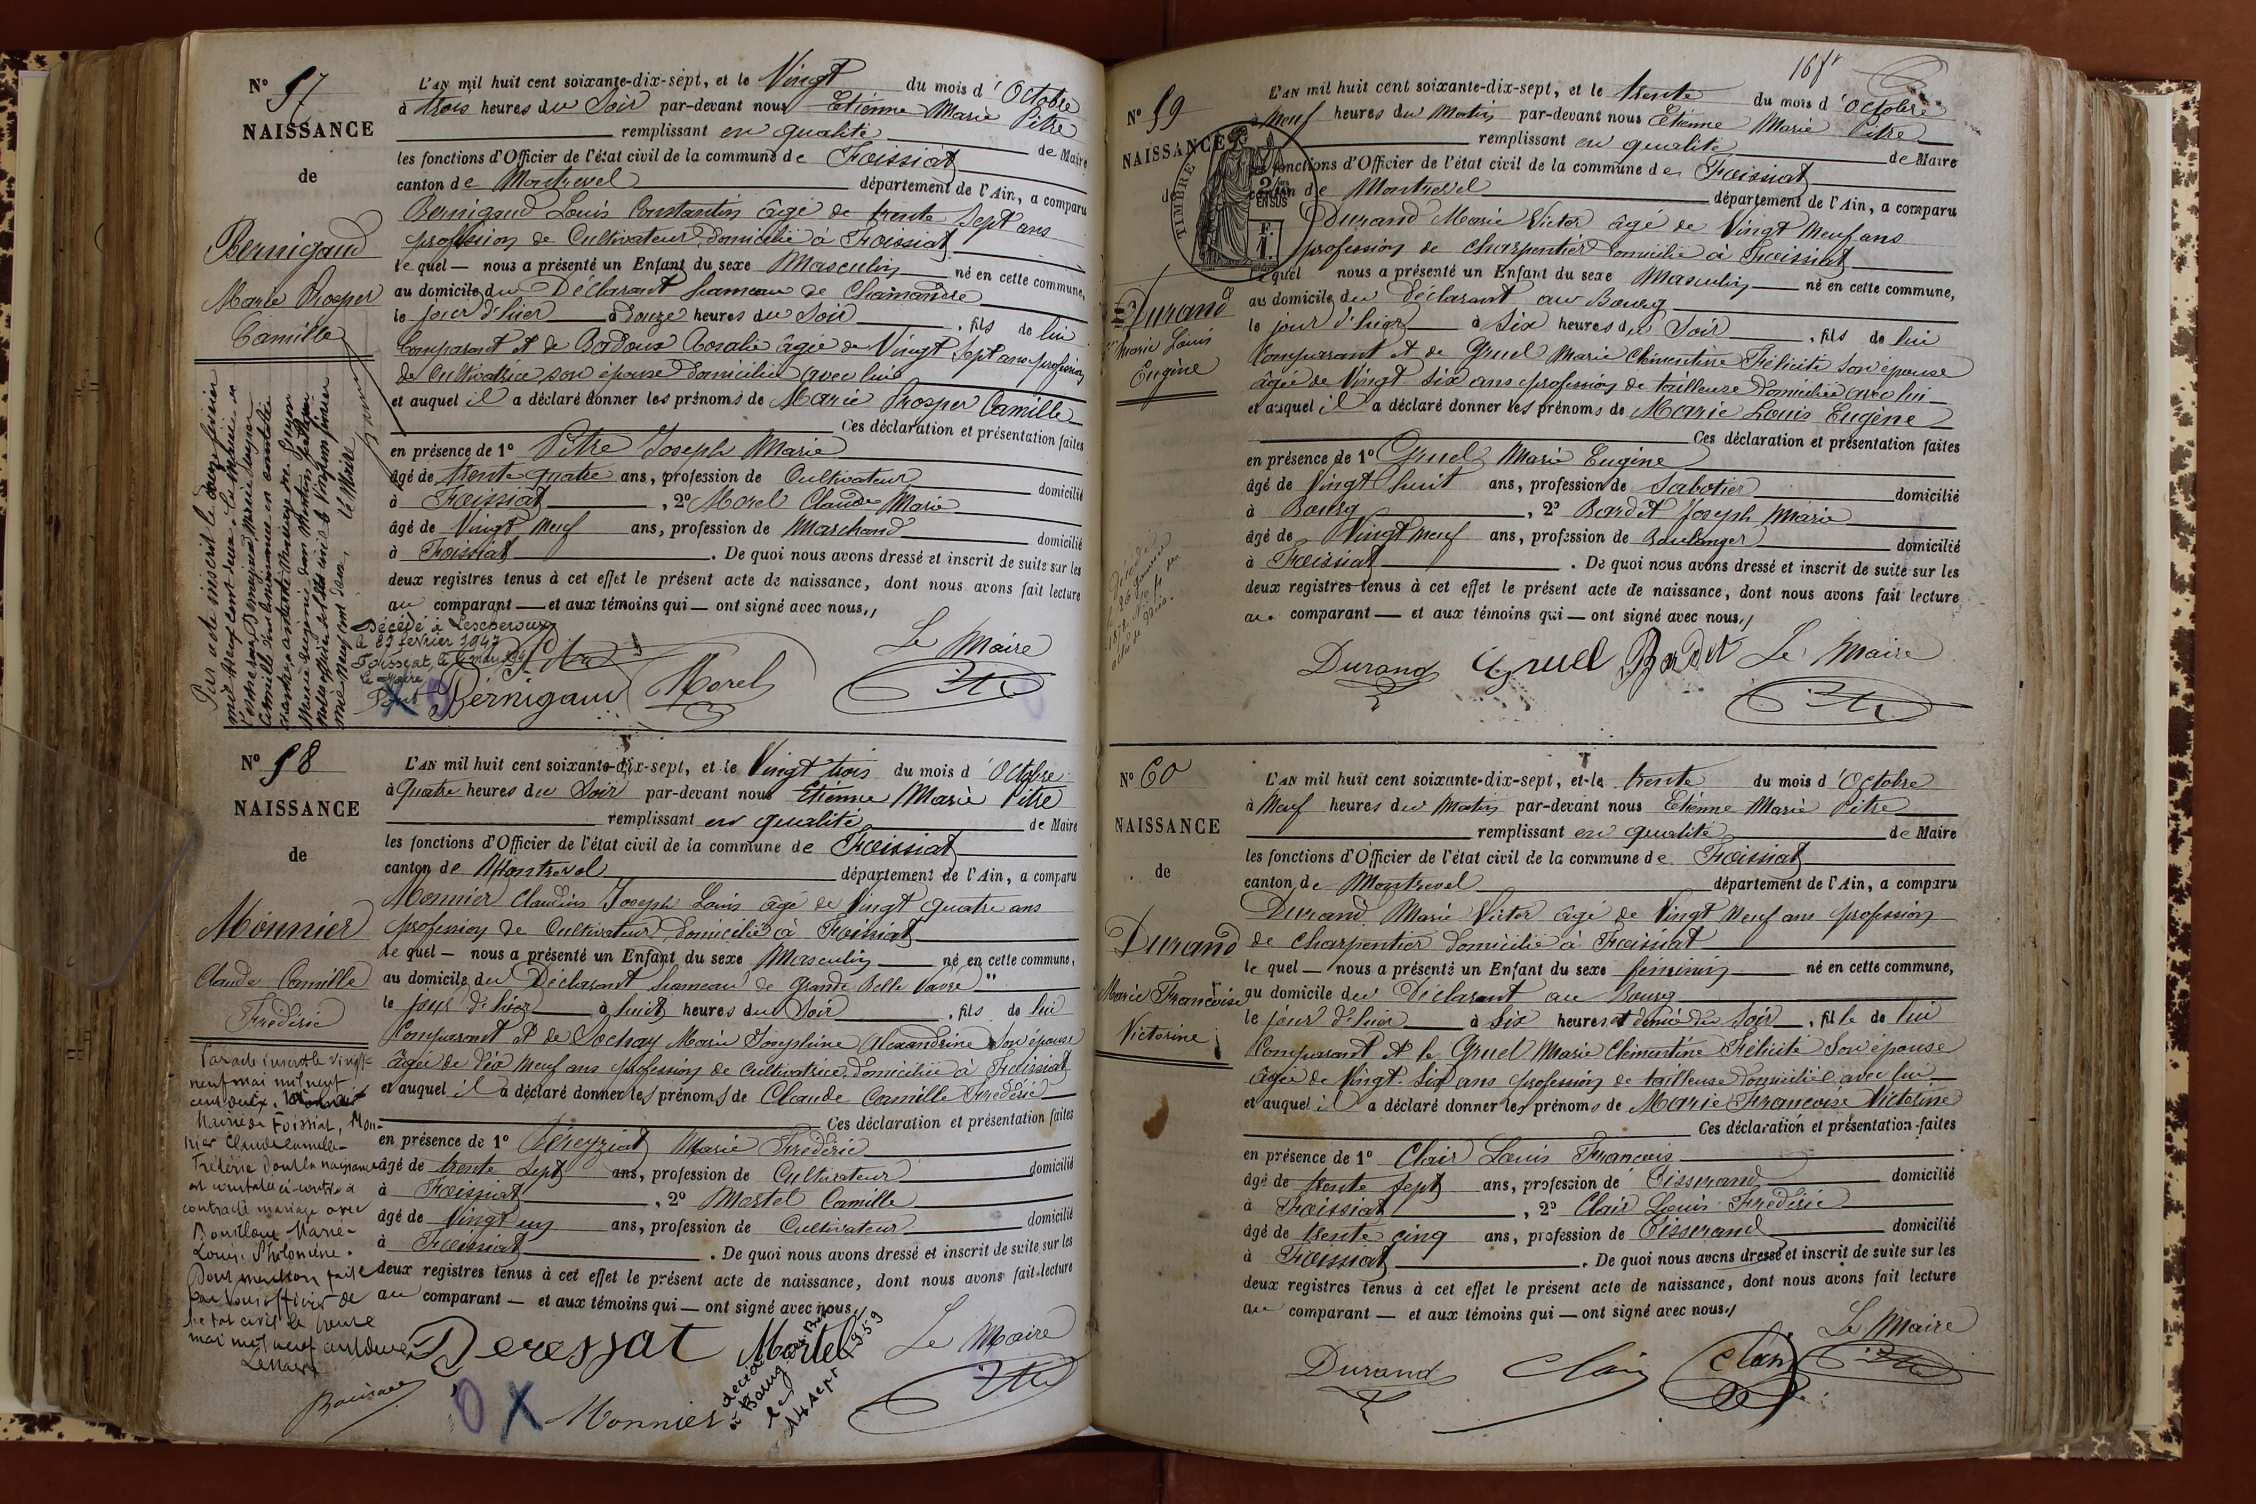 N° 57
NAISSANCE
de
Bernigaud
Marie Prosper
Camille
L'AN mil huit cent soixante-dix-sept, et le Vingt du mois d'Octobre
à trois heures du Soir par-devant nous Etienne Marie Pitre
remplissant en qualité de Maire
les fonctions d'Officier de l'état civil de la commune de Foissiat
canton de Montrevel département de l'Ain, a comparu
Bernigaud Louis Constantin âgé de trente Sept ans
profession de Cultivateur domicilié à Foissiat
le quel — nous a présenté un Enfant du sexe Masculin né en cette commune,
au domicile du Déclarant hameau de Chamandre
le jour d'hier à douze heures du Soir, fils de lui
Comparant et de Bodoux Rosalie âgée de Vingt Sept ans profession
de Cultivatrice son épouse domiciliée avec lui
et auquel il a déclaré donner les prénoms de Marie Prosper Camille
Ces déclaration et présentation faites
en présence de 1° Pitre Joseph Marie
âgé de trente quatre ans, profession de Cultivateur domicilié
à Foissiat, 2° Morel Claude Marie
âgé de Vingt Neuf ans, profession de Marchand domicilié
à Foissiat. De quoi nous avons dressé et inscrit de suite sur les
deux registres tenus à cet effet le présent acte de naissance, dont nous avons fait lecture
au comparant — et aux témoins qui — ont signé avec nous,,
Décédé à Lescheroux
le 27 février 1947
Foissiat, le mars
Le Maire
Le Maire
Bernigaud Morel Pitre
N° 58
NAISSANCE
de
Monnier
Claude Camille
Frédéric
Par acte inscrit le vingt-
neuf mai mil neuf
cent deux,
Mairie de Foissiat, Mon-
nier Claude Camille-
Frédéric dont la naissance
est constatée ci-contre a
contracté mariage avec
Marie-
Louise Philomène.
Dont mention faite
par Nous officier de
l'état civil le trente
mai mil neuf cent deux
Le Maire
L'AN mil huit cent soixante-dix-sept, et le Vingt trois du mois d'Octobre
à Quatre heures du Soir par-devant nous Etienne Marie Pitre
remplissant en qualité de Maire
les fonctions d'Officier de l'état civil de la commune de Foissiat
canton de Montrevel département de l'Ain, a comparu
Monnier Claudius Joseph Louis âgé de Vingt quatre ans
profession de Cultivateur domicilié à Foissiat
le quel — nous a présenté un Enfant du sexe Masculin né en cette commune,
au domicile du Déclarant hameau de Grande Belle Vavre
le jour d'hier à huit heures du Soir, fils de lui
Comparant et de Sochay Marie Joséphine Alexandrine Son épouse
âgée de Dix Neuf ans profession de Cultivatrice domiciliée à Foissiat
et auquel il a déclaré donner les prénoms de Claude Camille Frédéric
Ces déclaration et présentation faites
en présence de 1° Marie Frédéric
âgé de trente Sept ans, profession de Cultivateur domicilié
à Foissiat, 2° Martel Camille
âgé de Vingt un ans, profession de Cultivateur domicilié
à Foissiat. De quoi nous avons dressé et inscrit de suite sur les
deux registres tenus à cet effet le présent acte de naissance, dont nous avons fait lecture
au comparant — et aux témoins qui — ont signé avec nous,,
Le Maire
Martel
Monnier
décédé
à Bourg en Bresse
le
14 sept 1959
168
N° 59
NAISSANCE
de
Durand
Marie Louis
Eugène
TIMBRE
L'AN mil huit cent soixante-dix-sept, et le trente du mois d'Octobre
à Neuf heures du Matin par-devant nous Etienne Marie Pitre
remplissant en qualité de Maire
les fonctions d'Officier de l'état civil de la commune de Foissiat
canton de Montrevel département de l'Ain, a comparu
Durand Marie Victor âgé de Vingt Neuf ans
profession de charpentier domicilié à Foissiat
le quel nous a présenté un Enfant du sexe Masculin né en cette commune,
au domicile du Déclarant au Bourg
le jour d'hier à Six heures du Soir, fils de lui
Comparant et de Gruel Marie Clémentine Félicité Son épouse
âgée de Vingt Six ans profession de tailleuse domiciliée avec lui
et auquel il a déclaré donner les prénoms de Marie Louis Eugène
Ces déclaration et présentation faites
en présence de 1° Gruel Marie Eugène
âgé de Vingt huit ans, profession de Sabotier domicilié
à Bourg, 2° Bardet Joseph Marie
âgé de Vingt Neuf ans, profession de Boulanger domicilié
à Foissiat. De quoi nous avons dressé et inscrit de suite sur les
deux registres tenus à cet effet le présent acte de naissance, dont nous avons fait lecture
au comparant — et aux témoins qui — ont signé avec nous,,
Durand Gruel Bardet Le Maire
Pitre
N° 60
NAISSANCE
de
Durand
Marie Françoise
Victorine
L'AN mil huit cent soixante-dix-sept, et le trente du mois d'Octobre
à Neuf heures du Matin par-devant nous Etienne Marie Pitre
remplissant en qualité de Maire
les fonctions d'Officier de l'état civil de la commune de Foissiat
canton de Montrevel département de l'Ain, a comparu
Durand Marie Victor âgé de Vingt Neuf ans profession
de charpentier domicilié à Foissiat
le quel — nous a présenté un Enfant du sexe féminin né en cette commune,
au domicile du Déclarant au Bourg
le jour d'hier à Six heures et demie du Soir, fille de lui
Comparant et de Gruel Marie Clémentine Félicité Son épouse
âgée de Vingt Six ans profession de tailleuse domiciliée avec lui
et auquel il a déclaré donner les prénoms de Marie Françoise Victorine
Ces déclaration et présentation faites
en présence de 1° Clair Louis François
âgé de trente Sept ans, profession de Tisserand domicilié
à Foissiat, 2° Clair Louis Frédéric
âgé de trente cinq ans, profession de Tisserand domicilié
à Foissiat. De quoi nous avons dressé et inscrit de suite sur les
deux registres tenus à cet effet le présent acte de naissance, dont nous avons fait lecture
au comparant — et aux témoins qui — ont signé avec nous,,
Le Maire
Durand Clair Clair Pitre